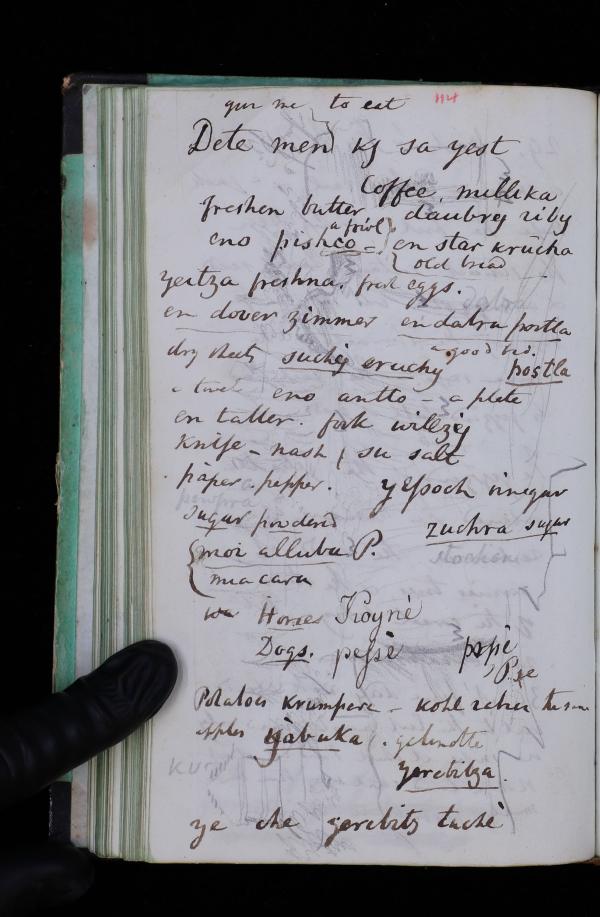 give me to eat 114
Dete meno kj sa yest
Coffee. mellika
freshen butter daubrej riby
eno pishco = a fowl en star krucha
old bread
yeitza freshna. fresh eggs.
en dover zimmer en dabra postla
a good bed.
dry sheets suchej eruchy postla
eno antto - a plete
en taller. fork willzij
knife - nash su salt
paper - pepper. yessoch vinegar
sugar powdered zuchra sugar
moi alluba P.
mia cara
Horses Koynié
Dogs. pessié psié
P.se
Potatoes krumpere - kohl the same
apples yabuka. gelinotte
yerebitza.
ye che yerebitz tuché